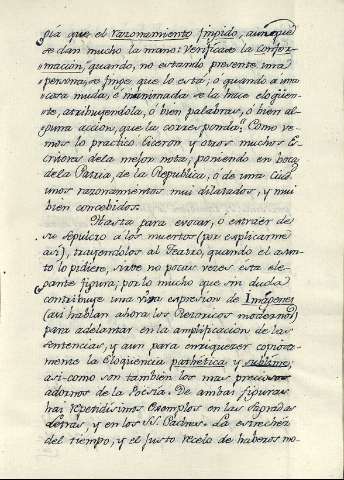 gía que el razonamiento fingido, aunque
se dan mucho la mano: Verificase la confor-
macion, quando, no estando presente una
persona, se finge que lo está; ó quando a una
cosa muda, é inanimada se la hace eloqüen-
te, atribuyéndola, ó bien palabras, ó bien al-
guna accion, que la corresponda. Como ve-
mos lo practicó Ciceron y otros muchos Es-
critores de la mejor nota, poniendo en boca
de la Patria, de la Republica, ó de una Ciudad
unos razonamientos mui dilatados, y mui
bien concebidos.
Hasta para evocar, ó extraer de
su Sepulcro a los muertos (por explicarme
asi), trayendolos al Teatro, quando el asun-
to lo pidiere, sirve no pocas veces ésta ele-
gante figura; por lo mucho que sin duda
contribuye una viva expresion de Imágenes
(asi hablan ahora los Retoricos modernos)
para adelantar en la amplificacion de las
sentencias, y aun para enriquezer copiosa-
mente la Eloqüencia pathética y sublime;
asi-como son tambien los mas preciosos
adornos de la Poesía. De ambas figuras
hai repetidisimos Exemplos en las Sagradas
Letras, y en los S.S. Padres. La estrechez
del tiempo, y el justo recelo de haberos mo-